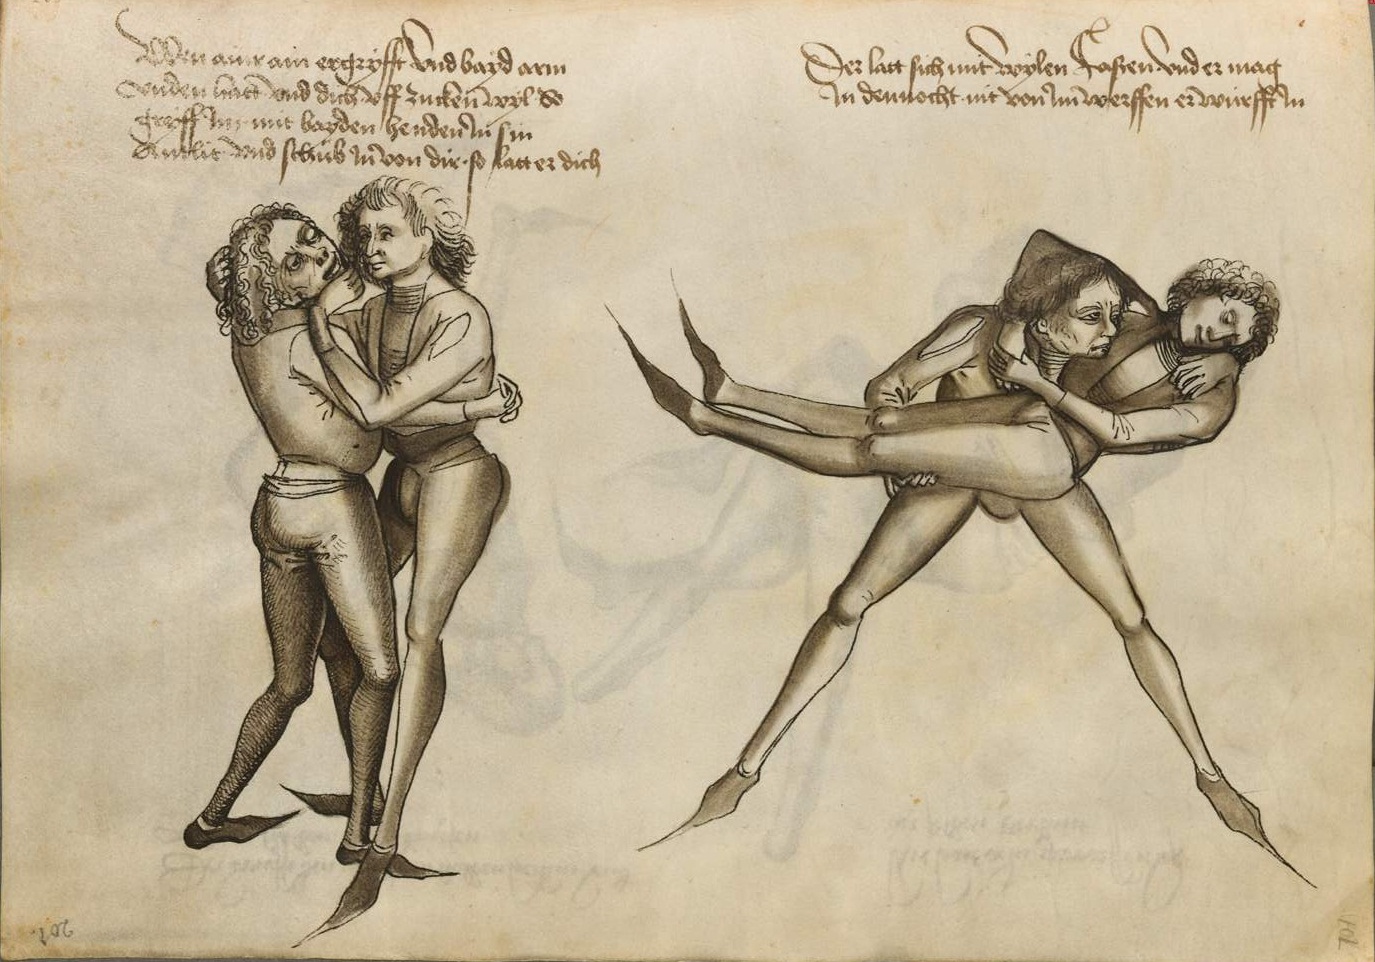 Wen ainr ain ergryfft vnd bayd arm
vnden hatt vnd dich vff zucken wyl So
gryff im mit bayden henden in sin
Antlit vnd schüb in von dir · so latt er dich
Der latt sich mit wylen fassen vnd er mag
in dennocht nit von im werffen er würfft in